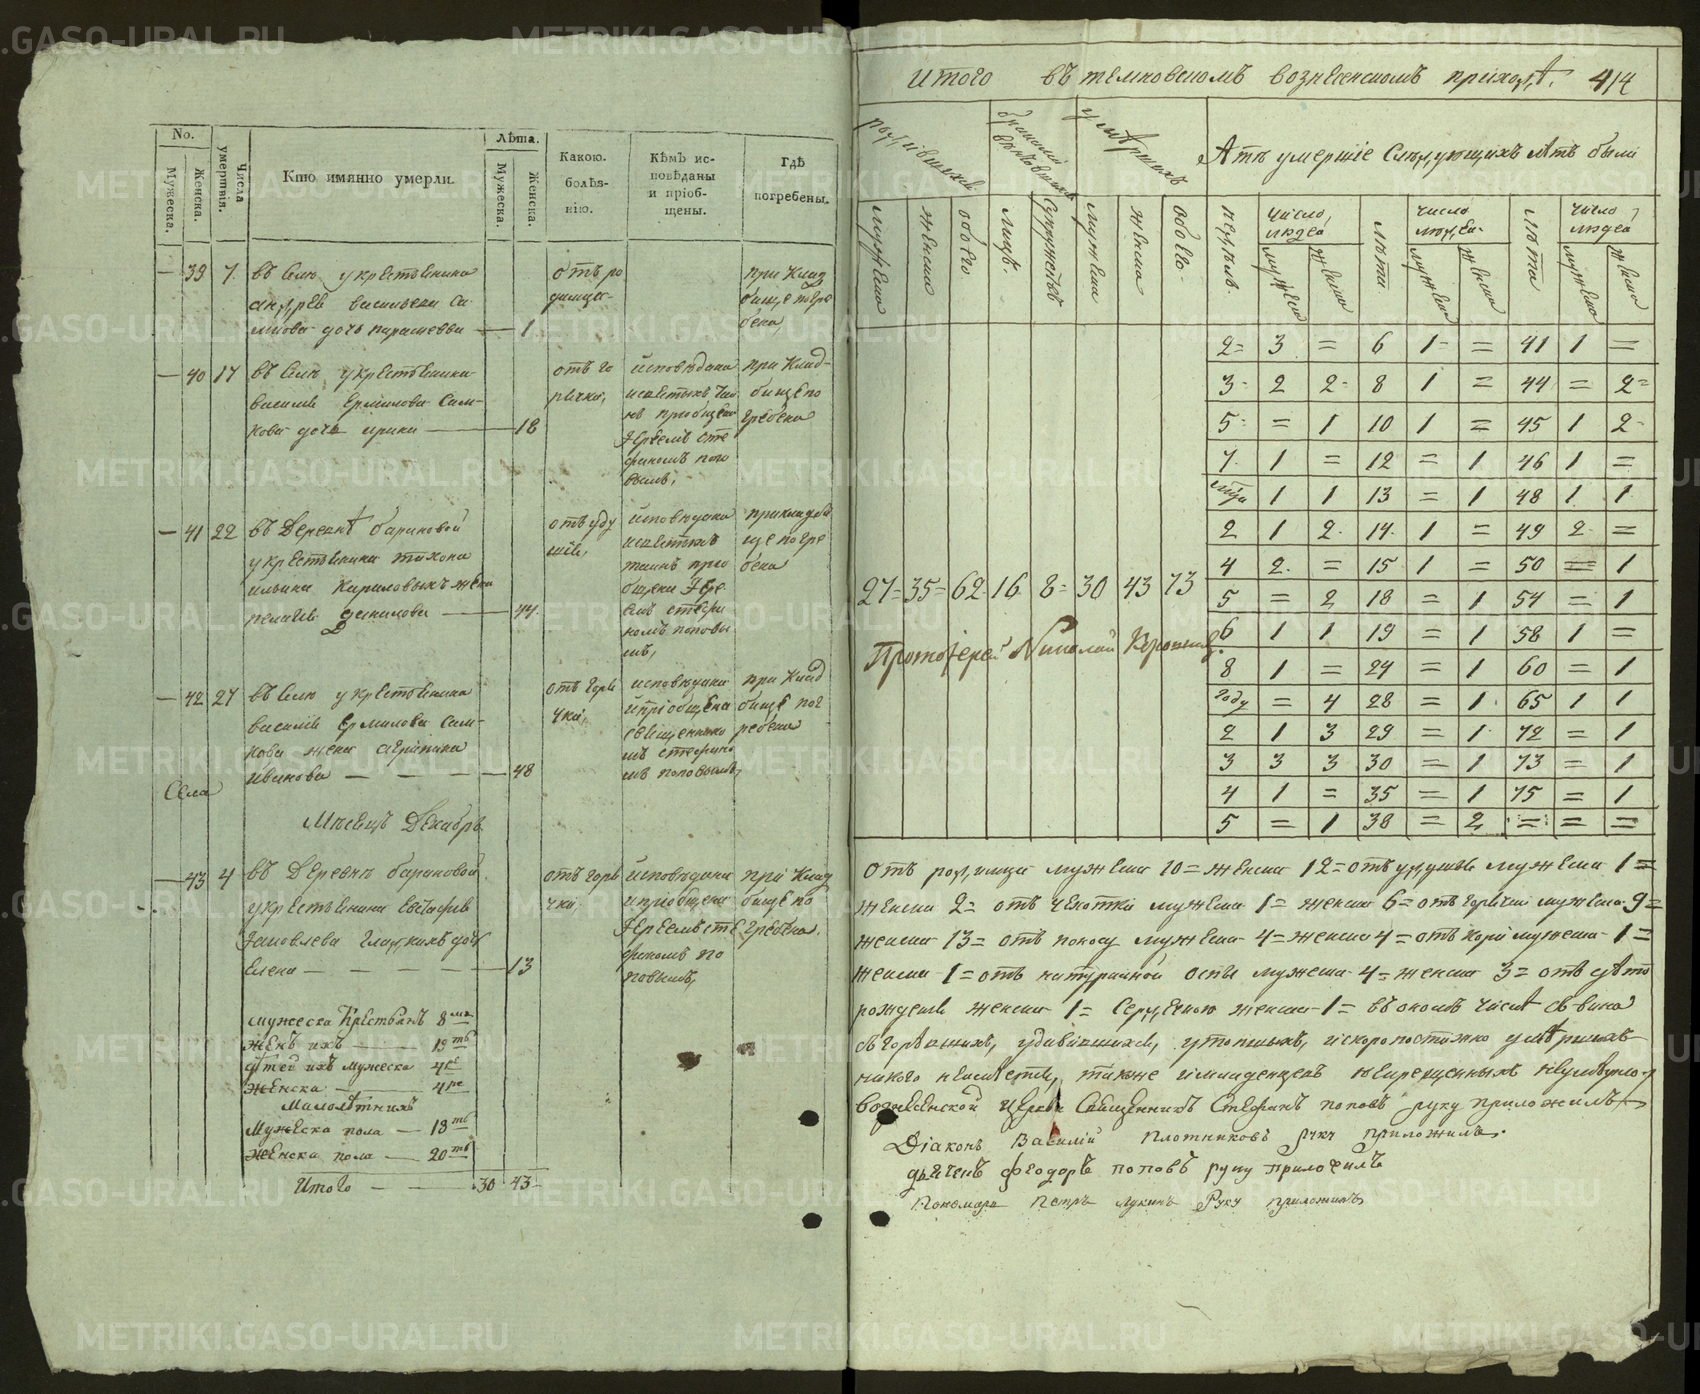 No.
Мужеска.
Женска.
Числа умертвія.
Кто имянно умерли.
Лѣта.
Мужеска.
Женска.
Какою.
болѣз-
нію.
Кѣмъ ис-
повѣданы
и пріоб-
щены.
Гдѣ
погребены.
— 39 7. въ селе у крестьянина
андрея васильева са
дочь парасковья — 1
отъ ро
димца
при клад
бище погре
бена
— 40 17 въ селе у крестьянина
василья Ермилова Сам-
кова дочь ирина — 18
отъ го
рячки,
исповедана
и святыхъ таи
нъ приобщена
Іереемъ сте
фаномъ попо
вымъ,
при клад-
бище по
гребена
— 41 22 въ деревнѣ бариновой
у крестьянина тихона
ильина Кириловыхъ жена
пелагея данилова — 44.
отъ уду
шья,
исповедана
и святыхъ
таинъ прио
бщена Іере
емъ стефа
номъ поповы
мъ,
при кладби
ще погре
бена
— 42 27 въ селе у крестьянина
василья Ермилова Сам-
кова жена агрипина
иванова — — — — 48
отъ горя
чки,
исповедана
и приобщена
священнико
мъ стефано
мъ поповымъ,
при клад
бище пог
ребена
Села
Месецъ Декабрь
— 43 4 въ деревне бариновой
у крестьянина Евстафья
Яковлева Гладкихъ дочь
Елена — — — — — 13
отъ горя
чки,
исповедана
и приобщена
Іереемъ сте
фаномъ по
повымъ,
при клад
бище по
гребена.
мужеска Крестьянъ 8мь
Женъ ихъ — 19ть
детей ихъ мужеска 4ре
Женска — 4ре
Малолетнихъ
Мужеска пола — 18ть
Женска пола — 20ть
Итого — — 30 43
Итого въ темновскомъ вознесенскомъ приходѣ. 414
родившихся
бракомъ
умершихъ
А тѣ умершіе следующихъ лѣтъ были
мужеска
женска
обоего
лицъ.
супружествъ
мужеска
женска
обоего.
недель.
число людей
мужеска
женска
лѣта.
число людей.
мужеска
женска
лѣта
число людей
мужеска
женска
2= 3 = 6 1- = 41 1 =
3- 2 2- 8 1 = 44 = 2=
5- = 1 10 1 = 45 1 2-
7. 1 = 12 = 1 46 1 =
1 1 13 = 1 48 1 1
2 1 2. 14. 1 = 49 2- =
4 2. = 15 1 = 50 = 1
5 = 2 18 = 1 54 = 1
6 1 1 19 = 1 58 1 =
8 1 = 24 = 1 60 = 1
году = 4 28 = 1. 65 1 1
2 1 3 29 = 1 72 = 1
3 3 3 30 = 1 73 = 1
4 1 = 35 = 1 75 = 1
5 = 1 38 = 2 = = =
27= 35= 62. 16 8= 30 43 73
Протоіерей Николай
отъ родимца мужеска 10= женска 12= отъ удушья мужеска 1=
женска 2= отъ чехотки мужеска 1= женска 6= отъ горячки мужеска 9=
женска 13= отъ поносу мужеска 4= женска 4= отъ кори мужеска 1=
женска 1= отъ натуральной оспы мужеска 4= женска 3= отъ дѣто
рожденія женска 1= Сердечною женска 1= въ ономъ числѣ отъ вина
сгорѣвшихъ, удавившихся, утопшихъ, искоропостижно умѣршихъ
никого неимѣетца, также имладенцевъ некрещенныхъ
вознесенской церкви Священникъ Стефанъ поповъ руку приложилъ
Діаконъ Василій Плотниковъ руку приложилъ.
дьячекъ феодоръ поповъ руку приложилъ
Пономарь Петръ лукинъ Руку приложилъ